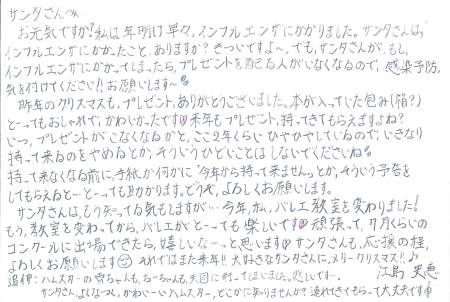 サンタさんへ
お元気ですか?私は年明け早々、インフルエンザにかかりました。サンタさんは、
インフルエンザにかかったこと、ありますか?きついですよ〜。でも、サンタさんが、もし、
インフルエンザにかかってしまったら、プレゼントを配る人がいなくなるので、感染予防、
気を付けてください!!お願いします〜
昨年のクリスマスも、プレゼント、ありがとうございました。本が入っていた包み(箱?)
と〜ってもおしゃれで、かわいかったです♡来年もプレゼント、持ってきてもらえますよね?
いつ、プレゼントがこなくなるかと、ここ2年くらいひやひやしているので、いきなり
持って来るのをやめるとか、そういうひどいことはしないでくださいね。
持って来なくなる前に、手紙か何かに「今年から持って来ません。」とか、そういう予告を
してもらえると…と〜っても助かります。どうぞ、よろしくお願いします。
サンタさんは、もう知ってる気もしますが…今年、私、バレエ教室を変わりました!
もう、教室を変わってから、バレエがと〜っても楽しいです♡頑張って、7月くらいの
コンクールに出場できたら、嬉しいな〜と思います♡サンタさんも、応援の程、
よろしくお願いします☺それではまた来年!!大好きなサンタさんに、メリークリスマス!!♪
追伸:ハムスターの雪ちゃんも、ちーちゃんも、天国に行ってしまいました。悲しいです…
サンタさん、よくなつく、かわい〜いハムスター、どこかに知りませんか?連れてきてもらって大丈夫です♡
江島 史恵